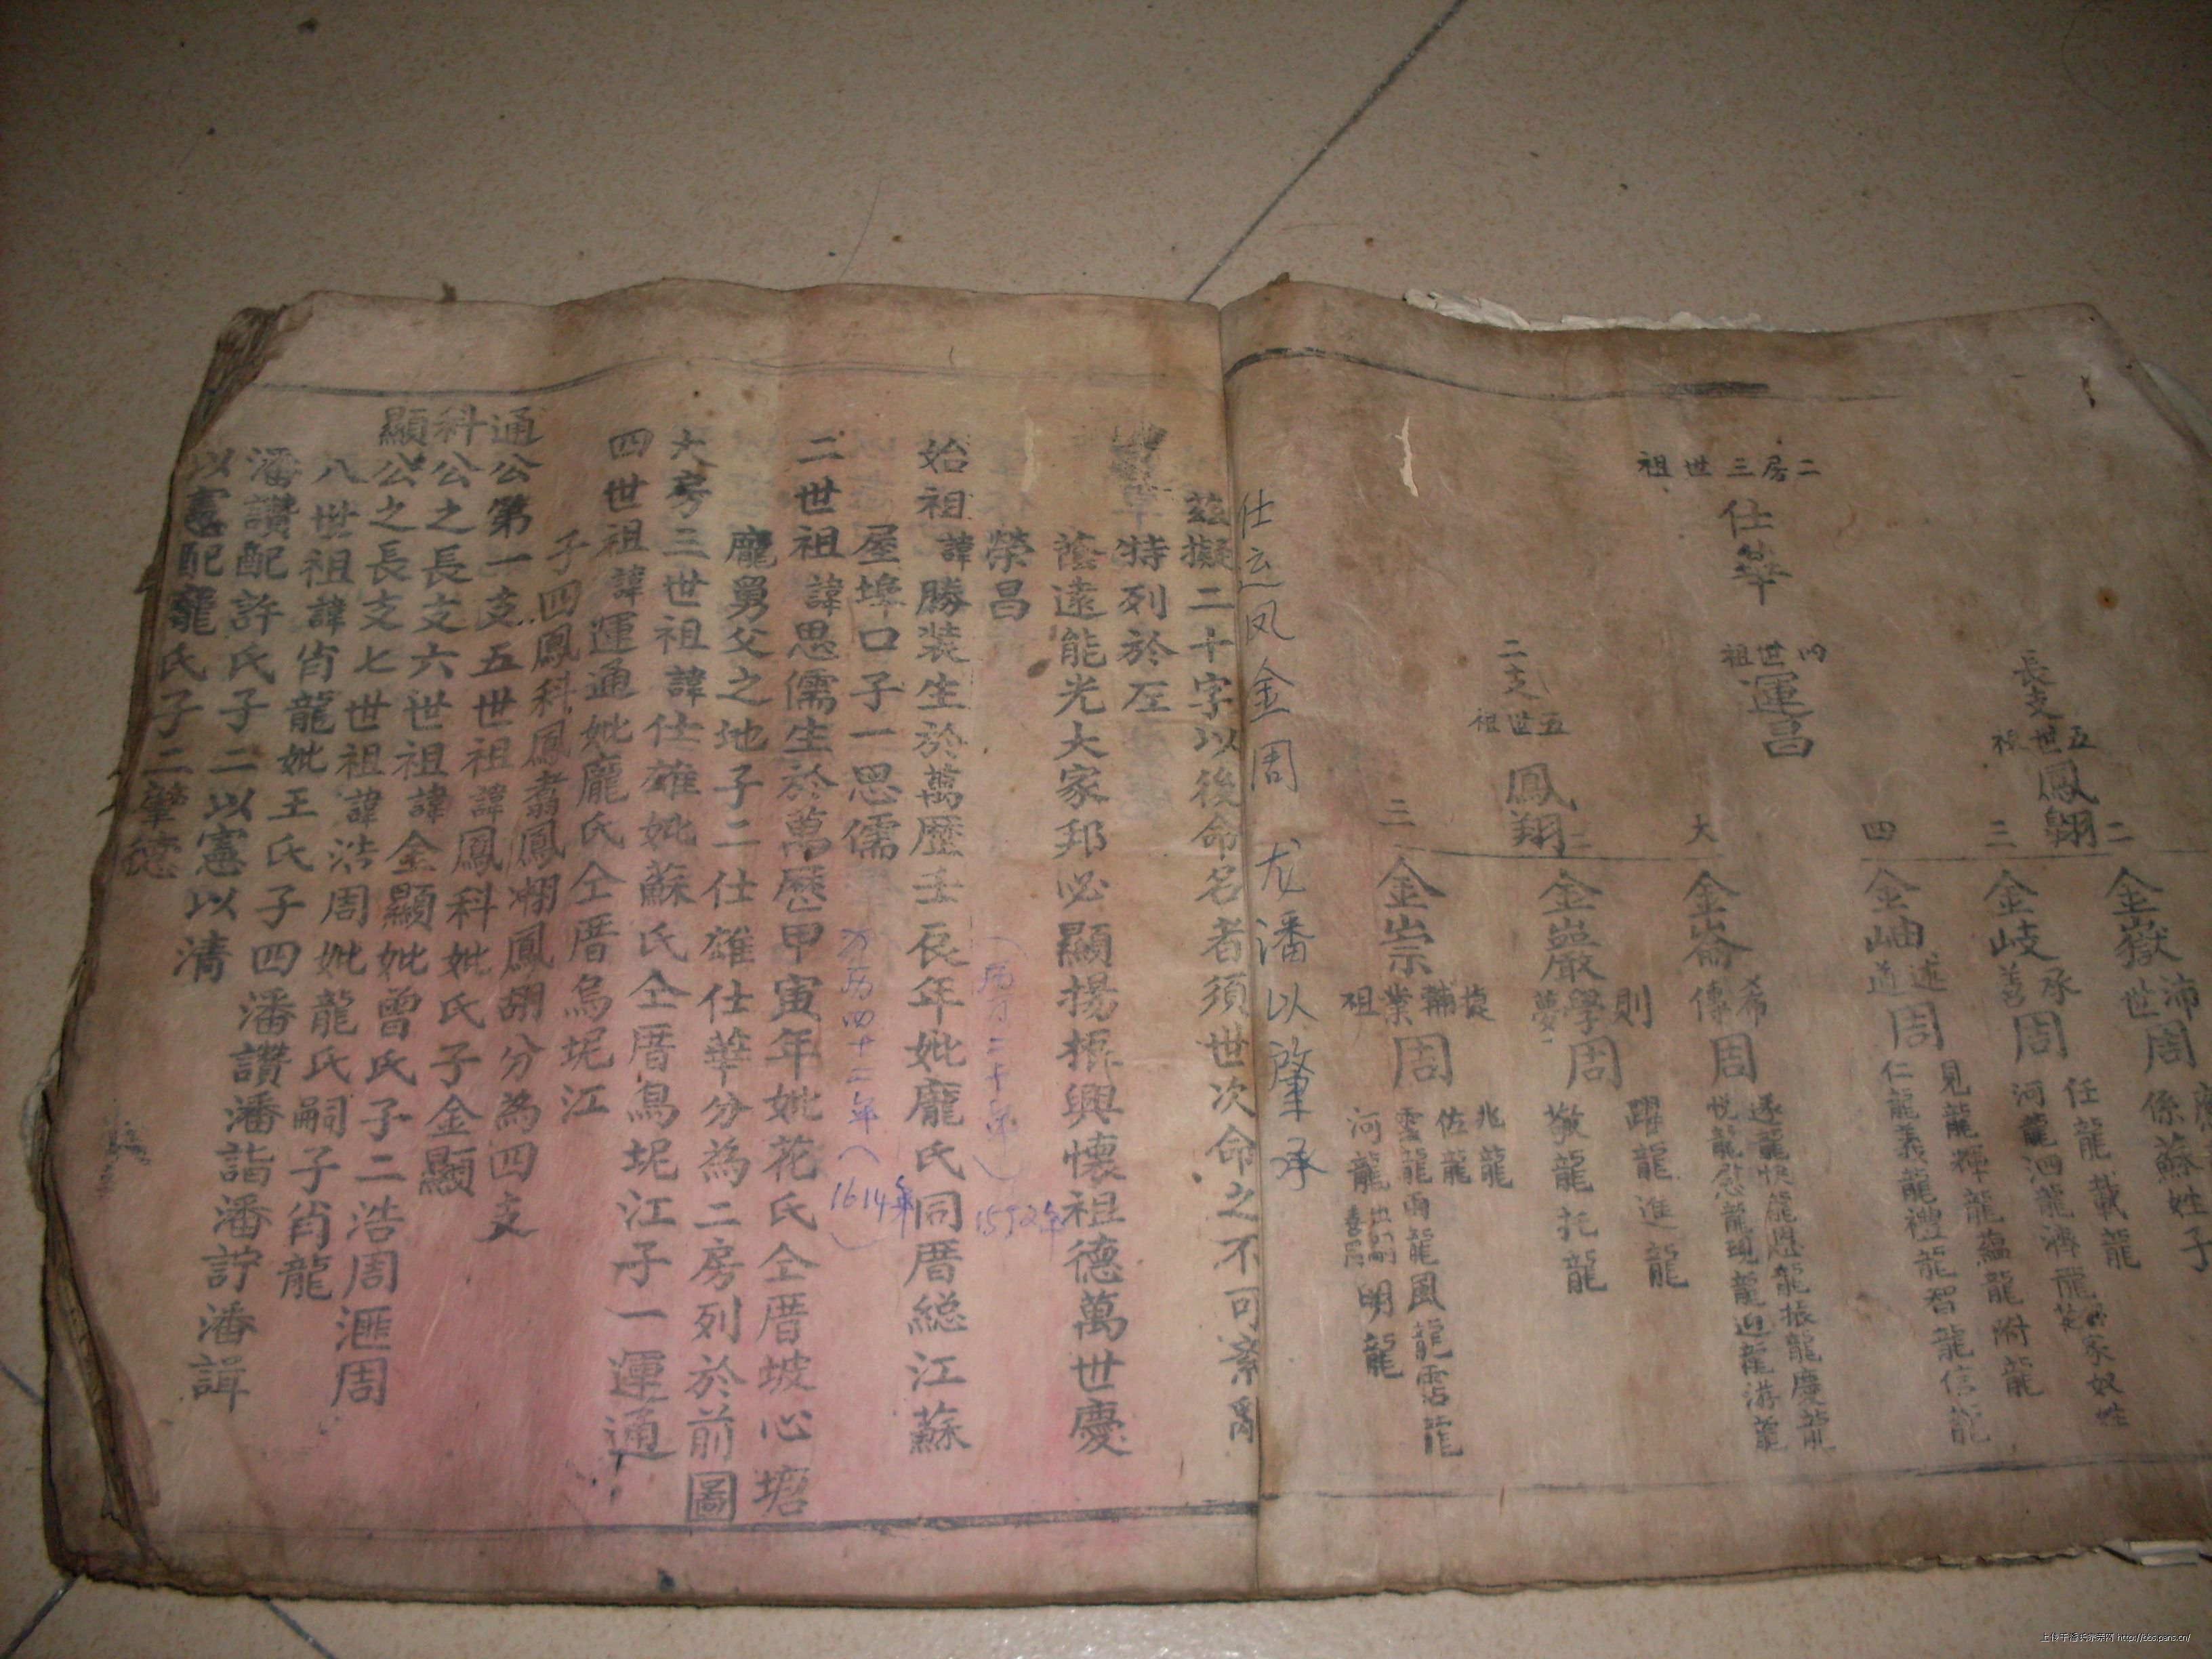 二房三世祖
仕華
四世祖
運昌
長支
五世祖
鳳翱
二
三
四
金嶽
沛世周
係蘇姓子
金岐
承善周
任龍載龍
河龍泗龍濟龍
金岫
述道周
見龍輝龍蘊龍附龍
仁龍義龍禮龍智龍信龍
二支
五世祖
鳳翔
大
二
三
金崙
希傳周
遂龍快龍恩龍振龍慶龍
悦龍慰龍現龍迎龍游龍
金巖
則學夢周
躍龍進龍
敬龍托龍
金崇
業祖周
兆龍
佐龍
雲龍雨龍風龍霑龍
河龍
明龍
仕运凤金周 龙潘以肇承
茲擬二十字以後命名者須世次命之不可紊
特列於左
蔭遠能光大家邦必顯揚振興懷祖德萬世慶
榮昌
(万历二十年) 1592年
始祖諱勝裝生於萬歷壬辰年妣龐氏同厝総江蘇
屋埠口子一思儒
万历四十二年(1614年)
二世祖諱思儒生於萬歷甲寅年妣花氏仝厝坡心塘
龐舅父之地子二仕雄仕華分為二房列於前圖
大房三世祖諱仕雄妣蘇氏仝厝烏坭江子一運通
四世祖諱運通妣龐氏仝厝烏坭江
子四鳳科鳳翥鳳翀鳳翷分為四支
通公第一支五世祖諱鳳科妣氏子金顯
科公之長支六世祖諱金顯妣曾氏子二浩周滙周
顯公之長支七世祖諱浩周妣龍氏嗣子肖龍
八世祖諱肖龍妣王氏子四潘讚潘詣潘詝潘諿
潘讚配許氏子二以憲以清
以憲配龐氏子二肇德
上传于潘氏宗亲网 http://bbs.pans.cn/